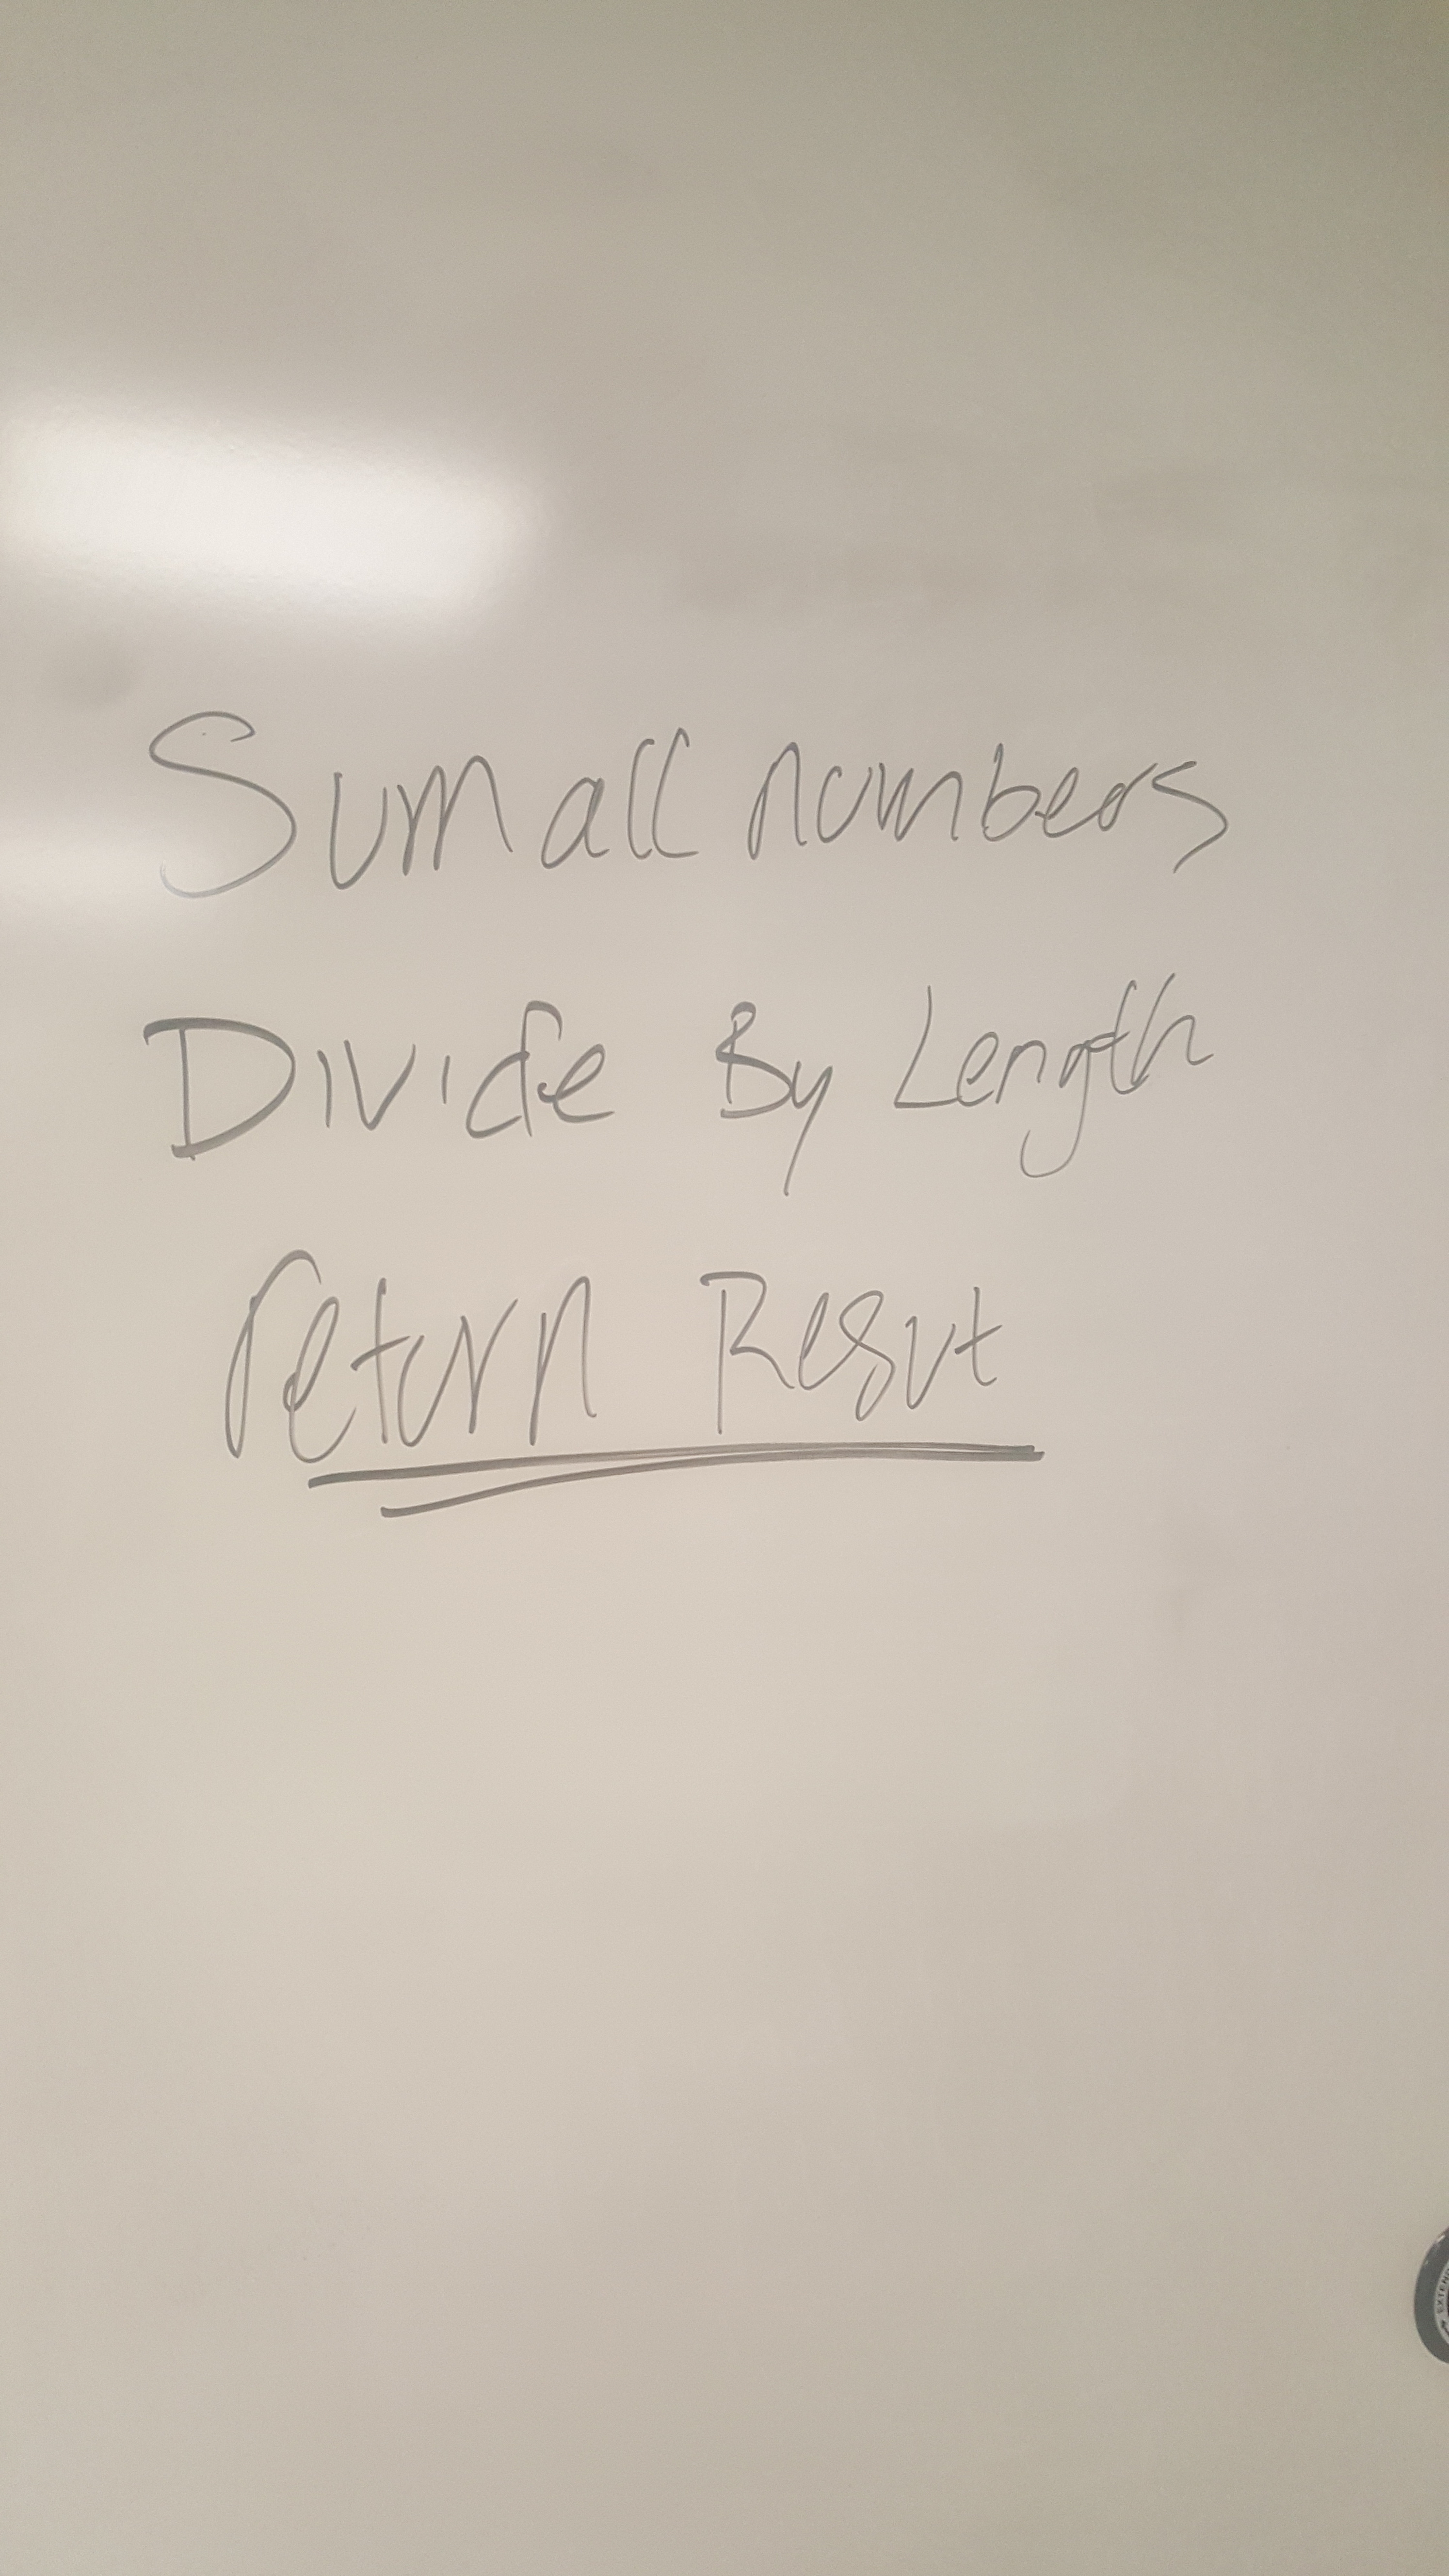 Sum all numbers
Divide By Length
return Resut